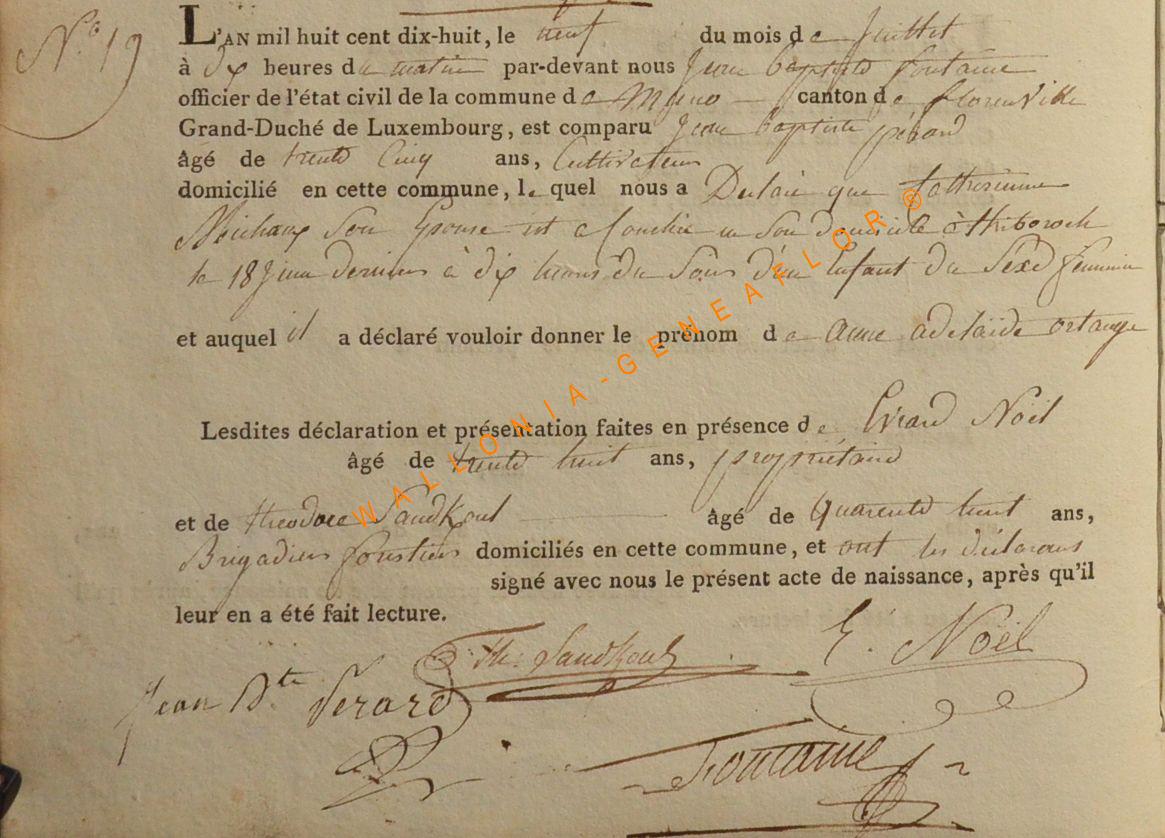 N.º 19
L'AN mil huit cent dix-huit, le neuf du mois de Juillet
à dix heures du matin par-devant nous Jean baptiste fontaine
officier de l'état civil de la commune de Muno canton de florenville
Grand-Duché de Luxembourg, est comparu Jean baptiste pérard
âgé de trente Cinq ans, Cultivateur
domicilié en cette commune, le quel nous a Declaré que Catherinne
Michaux Son Epouse est accouchée en Son domicile à
le 18 Juin dernier à dix heures du Soir d'un Enfant du Sexe feminin
et auquel il a déclaré vouloir donner le prénom de anne adelaïde
Lesdites déclaration et présentation faites en présence de Evrard Noël
âgé de trente huit ans, propriétaire
et de theodore Sandkoul âgé de Quarente huit ans,
Brigadier forestier domiciliés en cette commune, et ont les déclarans
signé avec nous le présent acte de naissance, après qu'il
leur en a été fait lecture.
Th. Sandkoul E. Noël
Jean Bte Perard
Fontaine
WALLONIA-GENEAFLOR®